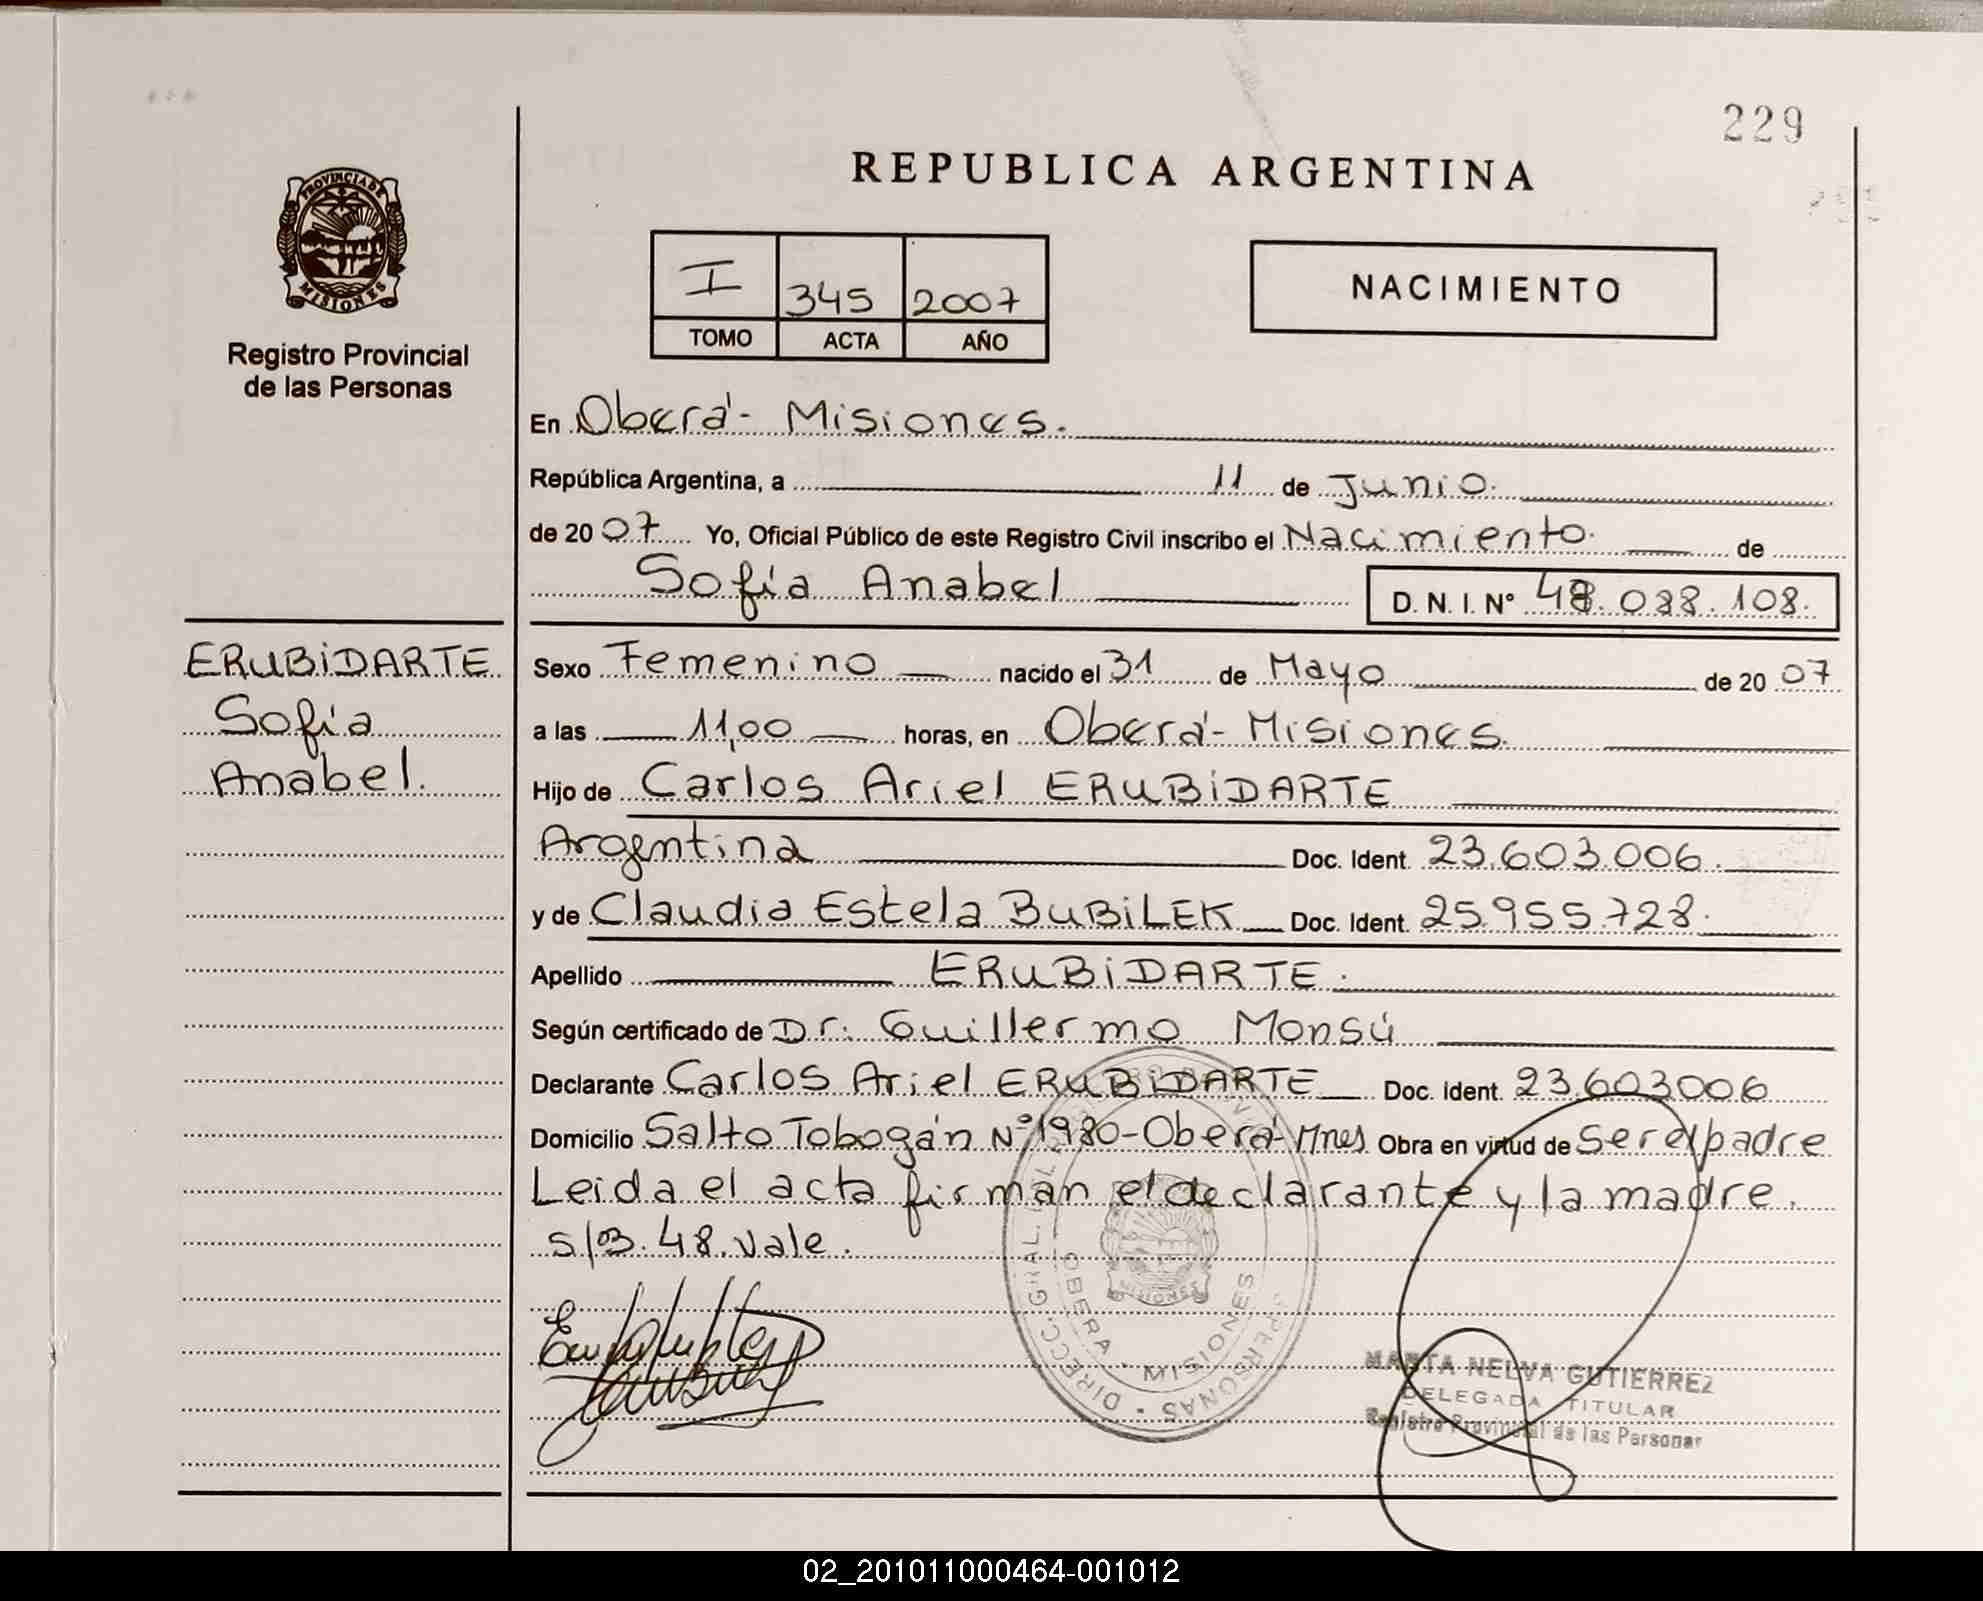 229
REPUBLICA ARGENTINA
PROVINCIA DE
MISIONES
Registro Provincial
de las Personas
I 345 2007
TOMO ACTA AÑO
NACIMIENTO
En Oberá - Misiones.
República Argentina, a 11 de Junio.
de 20 07 Yo, Oficial Público de este Registro Civil inscribo el Nacimiento. de
Sofía Anabel D. N. I. Nº 48.088.108.
ERUBIDARTE
Sofía
Anabel.
Sexo Femenino nacido el 31 de Mayo de 20 07
a las 11,00 horas, en Oberá - Misiones.
Hijo de Carlos Ariel ERUBIDARTE
Argentina Doc. Ident. 23.603.006.
y de Claudia Estela BUBILEK Doc. Ident. 25955.728.
Apellido ERUBIDARTE.
Según certificado de Dr. Guillermo Monsú
Declarante Carlos Ariel ERUBIDARTE Doc. Ident. 23.603006
Domicilio Salto Tobogán Nº 1980-Oberá-Mnes Obra en virtud de ser el padre
Leida el acta firman el declarante y la madre.
s/B. 48. Vale.
OBERA - MISIONES
MISIONES
MARTA NELVA GUTIERREZ
DELEGADA TITULAR
Registro Provincial de las Personas
02_201011000464-001012